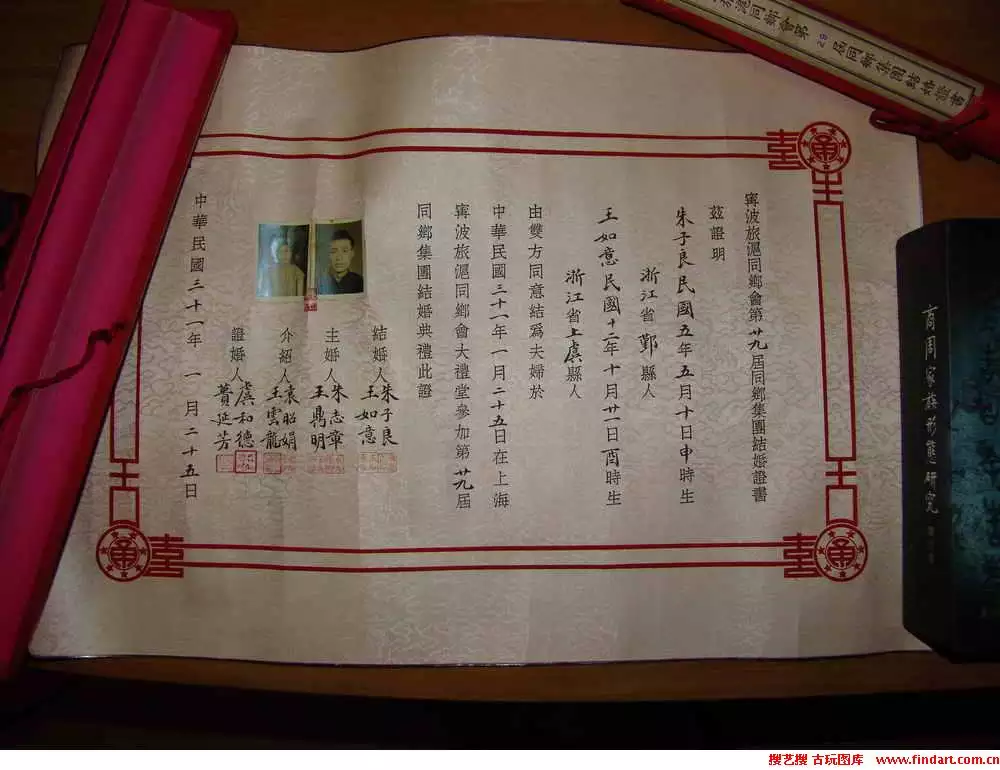 甯波旅滬同鄉會第廿九屆同鄉集團結婚證書
茲證明
朱子良民國五年五月十日申時生
浙江省鄞縣人
王如意民國十二年十月廿一日酉時生
浙江省上虞縣人
由雙方同意結爲夫婦於
中華民國三十一年一月二十五日在上海
甯波旅滬同鄉會大禮堂參加第廿九屆
同鄉集團結婚典禮此證
結婚人 朱子良
王如意
主婚人 朱志章
王鼎明
介紹人 袁昭娟
王雲龍
證婚人 虞和德
蕢延芳
中華民國三十一年 一月二十五日
旅滬同鄉會第29屆同鄉集團結婚證書
商周家族形態研究
搜艺搜 古玩图库 www.findart.com.cn